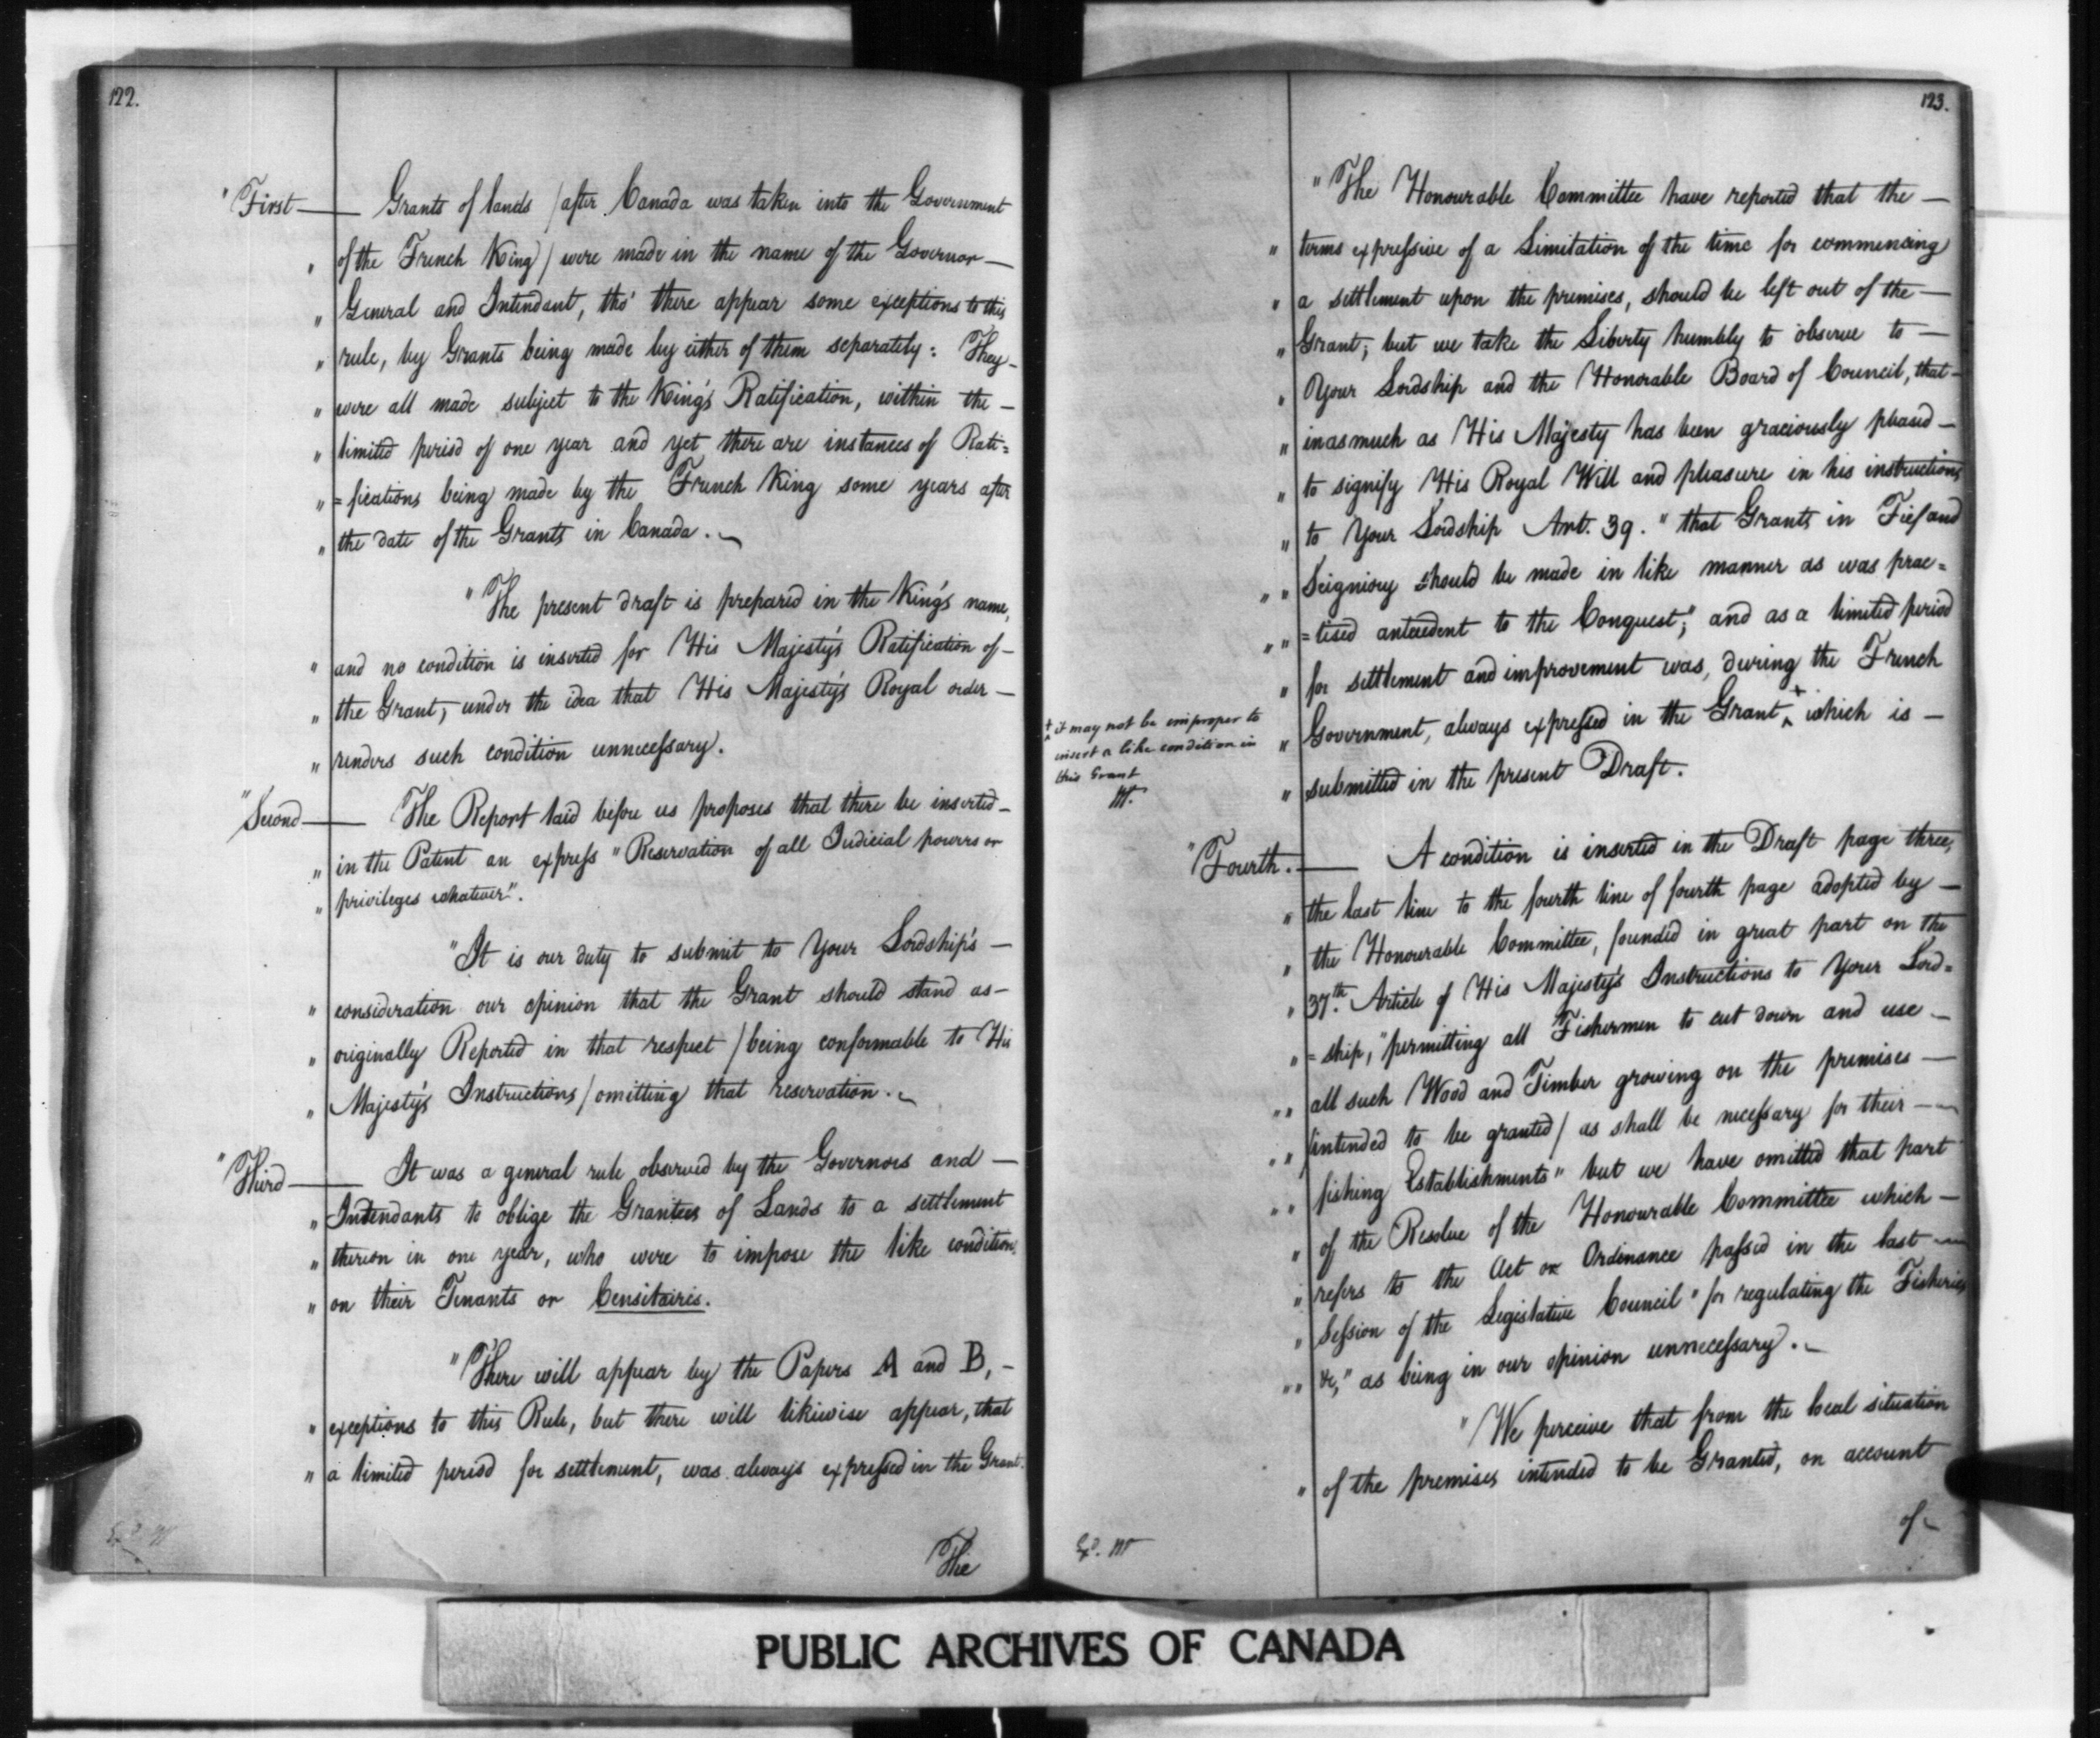 122.
"First — Grants of lands / after Canada was taken into the Government
" of the French King / were made in the name of the Governor —
" General and Intendant, tho' there appear some exceptions to this
" rule, by Grants being made by either of them separately: They —
" were all made subject to the King's Ratification, within the —
" limited period of one year and yet there are instances of Rati=
" =fications being made by the French King some years after
" the date of the Grants in Canada. —
"The present draft is prepared in the King's name,
" and no condition is inserted for His Majesty's Ratification of —
" the Grant, under the idea that His Majesty's Royal order —
" renders such condition unnecessary.
"Second — The Report laid before us proposes that there be inserted —
" in the Patent an express "Reservation of all Judicial powers or
" privileges whatever".
"It is our duty to submit to Your Lordship's —
" consideration our opinion that the Grant should stand as —
" originally Reported in that respect / being conformable to His
" Majesty's Instructions / omitting that reservation. —
"Third — It was a general rule observed by the Governors and —
" Intendants to oblige the Grantees of Lands to a settlement
" thereon in one year, who were to impose the like condition
" on their Tenants or Censitaires.
"There will appear by the Papers A and B, —
" exceptions to this Rule, but there will likewise appear, that
" a limited period for settlement, was always expressed in the Grant.
The
123.
"The Honourable Committee have reported that the —
" terms expressive of a Limitation of the time for commencing
" a settlement upon the premises, should be left out of the —
" Grant; but we take the Liberty humbly to observe to —
" Your Lordship and the Honorable Board of Council, that —
" inasmuch as His Majesty has been graciously pleased —
" to signify His Royal Will and pleasure in his instructions
" to Your Lordship Art. 39. "that Grants in Fief and
" " Seigniory should be made in like manner as was prac=
" " =tised antecedent to the Conquest;" and as a limited period
" for settlement and improvement was, during the French
" Government, always expressed in the Grant + ‸ which is —
" submitted in the present Draft.
+ ‸ it may not be improper to
insert a like condition in
this Grant
W.
"Fourth. — A condition is inserted in the Draft page three,
" the last line to the fourth line of fourth page adopted by —
" the Honourable Committee, founded in great part on the
" 37.th Article of His Majesty's Instructions to Your Lord=
" =ship, "permitting all Fishermen to cut down and use —
" " all such Wood and Timber growing on the premises —
" " /intended to be granted/ as shall be necessary for their —
" " fishing Establishments" but we have omitted that part
" of the Resolve of the Honourable Committee which —
" refers to the Act or Ordinance passed in the last —
" Session of the Legislative Council "for regulating the Fisheries
" " &c," as being in our opinion unnecessary. —
"We perceive that from the local situation
" of the premises intended to be Granted, on account
of —
PUBLIC ARCHIVES OF CANADA